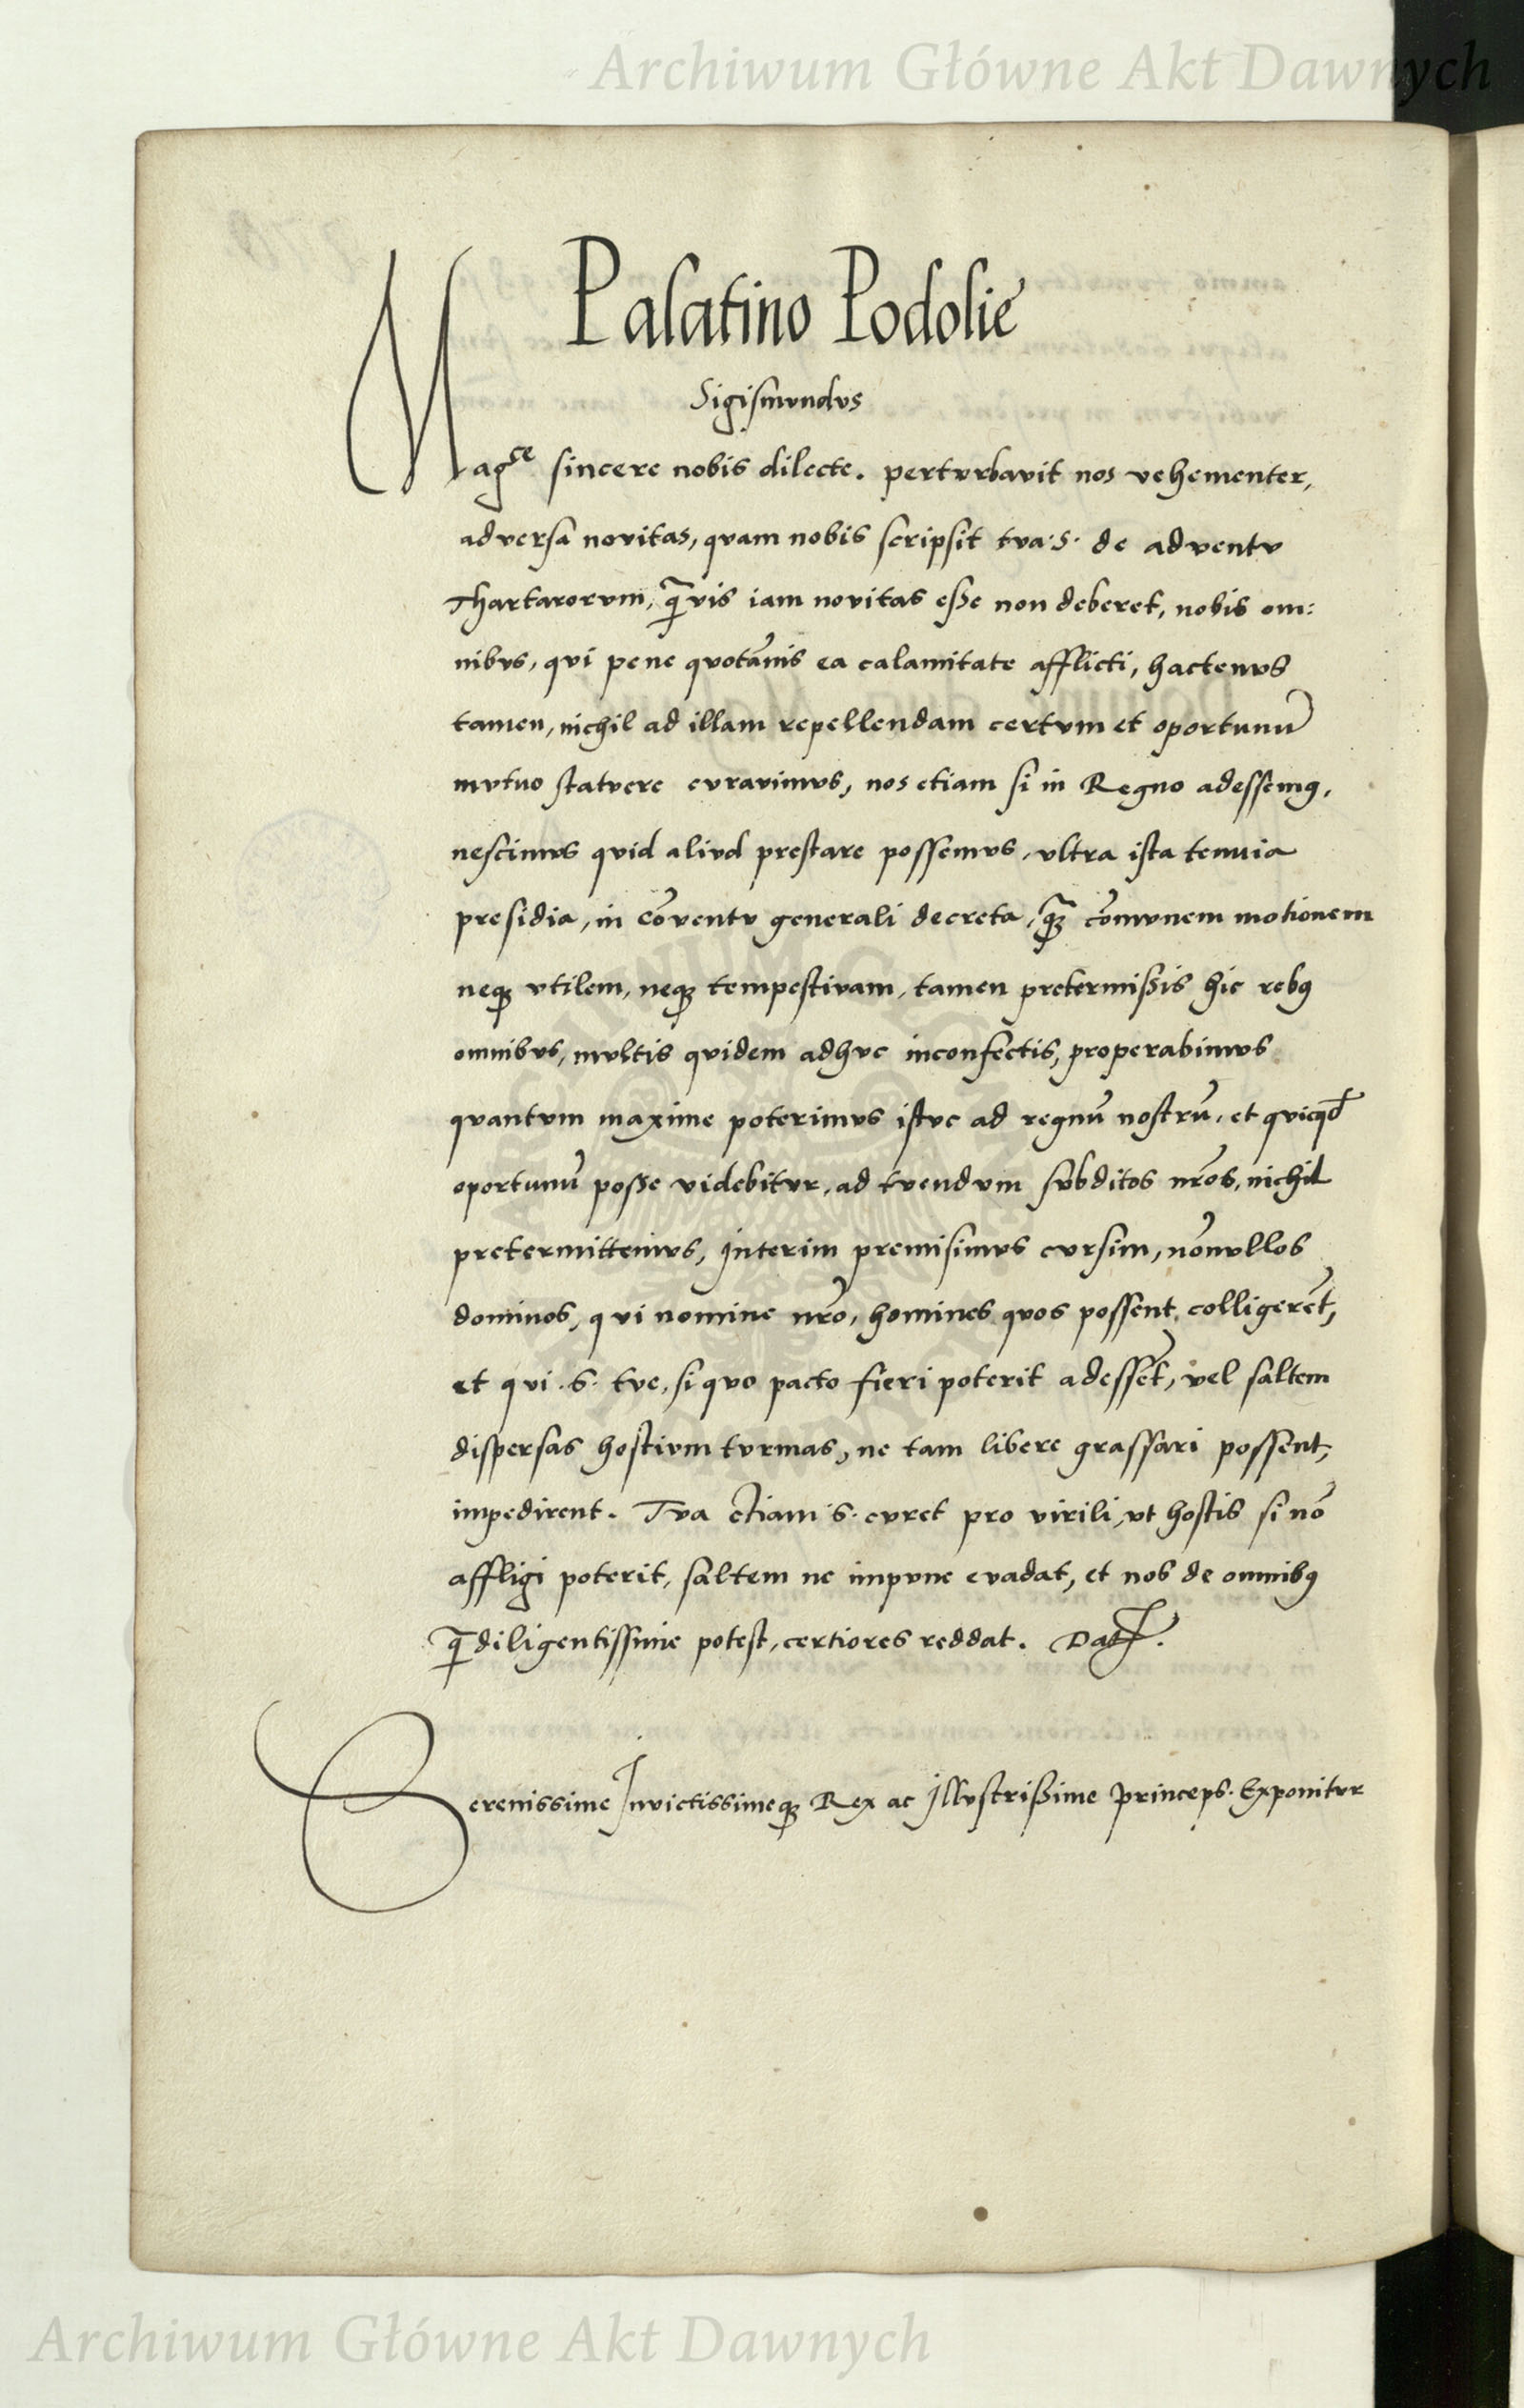 Archiwum Główne Akt Dawnych
Palatino Podolie
Sigismundus
Mag^ce sincere nobis dilecte. perturbavit nos vehementer,
adversa novitas, quam nobis scripsit tua .S. de adventu
Thartarorum, q̄vis iam novitas esse non deberet, nobis om:
nibus, qui pene quotānis ea calamitate afflicti, hactenus
tamen, nichil ad illam repellendam certum et oportunū
mutuo statuere curavimus, nos etiam si in Regno adessemꝰ,
nescimus quid aliud prestare possemus, ultra ista tenuia
presidia, in cōventu generali decreta, q̄ꝫ cōmunem motionem
neqꝫ utilem, neqꝫ tempestivam, tamen pretermissis hic rebꝰ
omnibus, multis quidem adhuc inconfectis, properabimus
quantum maxime poterimus istuc ad regnū nostrū, et quicqd
oportunū posse videbitur, ad tuendum subditos nr̄os, nichil
pretermittemus, interim premisimus cursim, nōnullos
dominos, qui nomine nr̄o, homines quos possent colligerēt,
et qui .S. tue, si quo pacto fieri poterit adessēt, vel saltem
dispersas hostium turmas, ne tam libere grassari possent,
impedirent. Tua etiam .S. curet pro virili, ut hostis si nō
affligi poterit, saltem ne impune evadat, et nos de omnibꝰ
q̄ diligentissime potest, certiores reddat. Dat̄.
Serenissime Invictissimeqꝫ Rex ac Illustrissime Princeps. Exponitur
Archiwum Główne Akt Dawnych